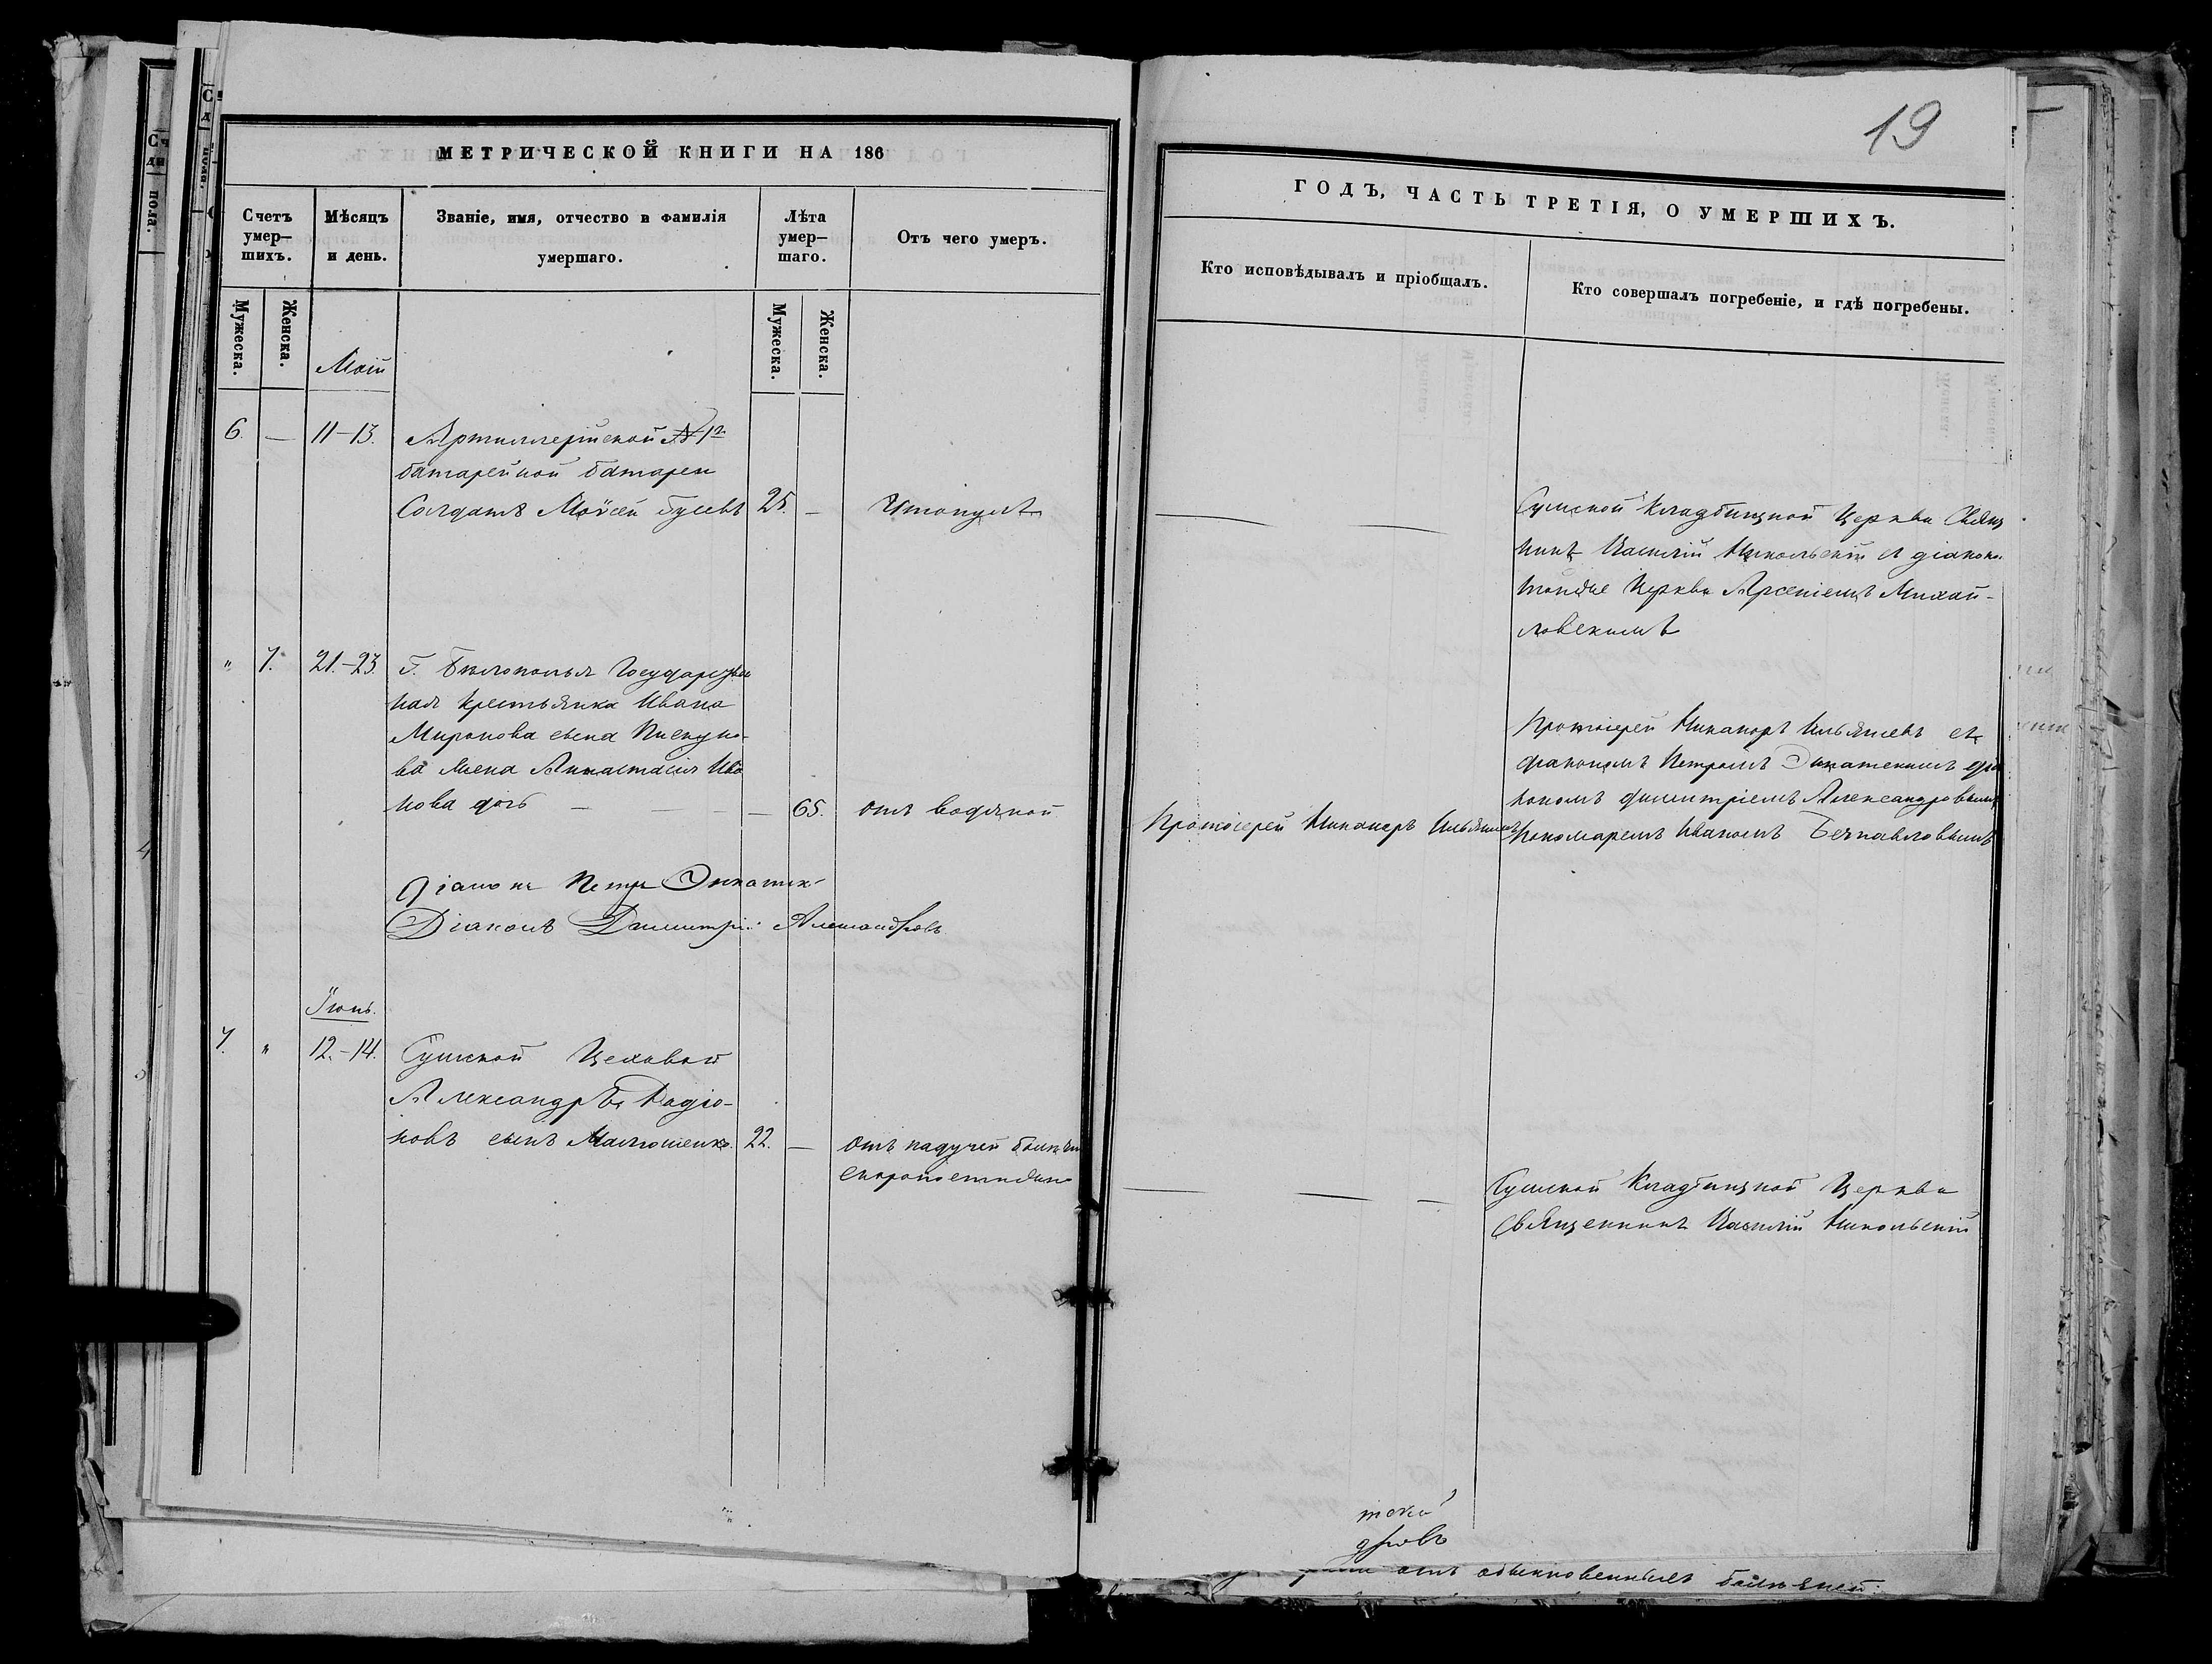 МЕТРИЧЕСКОЙ КНИГИ НА 186
Счетъ умер-шихъ.
Мѣсяцъ и день.
Званіе, имя, отчество и фамилія умершаго.
Лѣта умер-шаго.
Отъ чего умеръ.
Мужеска.
Женска.
Мужеска.
Женска.
Май
6. — 11–13. Артиллерійской № 1й
батарейной батареи
Солдатъ Моѵсей Гусевъ 25. — Утонулъ
" 7. 21.–23. Г. Бѣлополья Государствен
ная крестьянка Ивана
Миронова сына Пискуно-
ва жена Анастасія Ива
нова дочь — — — 65. отъ водяной
Діаконъ Петръ
Діаконъ Димитрій Александровъ
Іюнь.
7. " 12.–14. Сумской Цеховой
Александръ Радіо-
новъ сынъ 22. — отъ падучей болѣзни
скоропостижно
19
ГОДЪ, ЧАСТЬ ТРЕТІЯ, О УМЕРШИХЪ.
Кто исповѣдывалъ и пріобщалъ.
Кто совершалъ погребеніе, и гдѣ погребены.
— — Сумской Кладбищной Церкви Свящ
никъ Василій Никольскій съ діакономъ
тойже Церкви Арсеніемъ Михай-
ловскимъ
Протоіерей Никаноръ съ
діакономъ Петромъ діа
кономъ Димитріемъ Александровымъ
Протоіерей Никаноръ
Пономаремъ Иваномъ
— — — Сумской Кладбищной Церкви
Священникъ Василій Никольскій
дровъ
отъ обыкновенныхъ болѣзней.